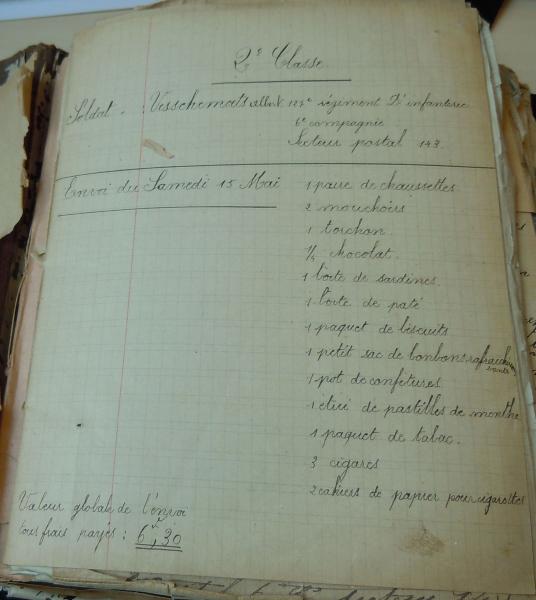 2e Classe
Soldat - Visschemats Albert 127e régiment D'infanterie
6e compagnie
Secteur postal 143
Envoi du Samedi 15 Mai
1 paire de chaussettes
2 mouchoirs
1 torchon
½ chocolat.
1 boîte de sardines.
1 boîte de paté
1 paquet de biscuits
1 petit sac de bonbons rafraichissants
1 pot de confitures
1 étui de pastilles de menthe
1 paquet de tabac.
3 cigares
2 cahiers de papier pour cigarettes
Valeur globale de l'envoi
tous frais payés : 6f,30